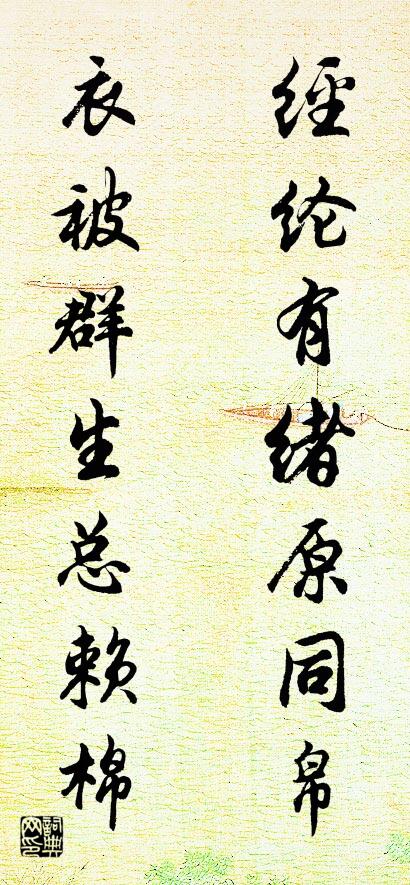 經纶有绪原同帛
衣被群生总赖棉
詞典网印